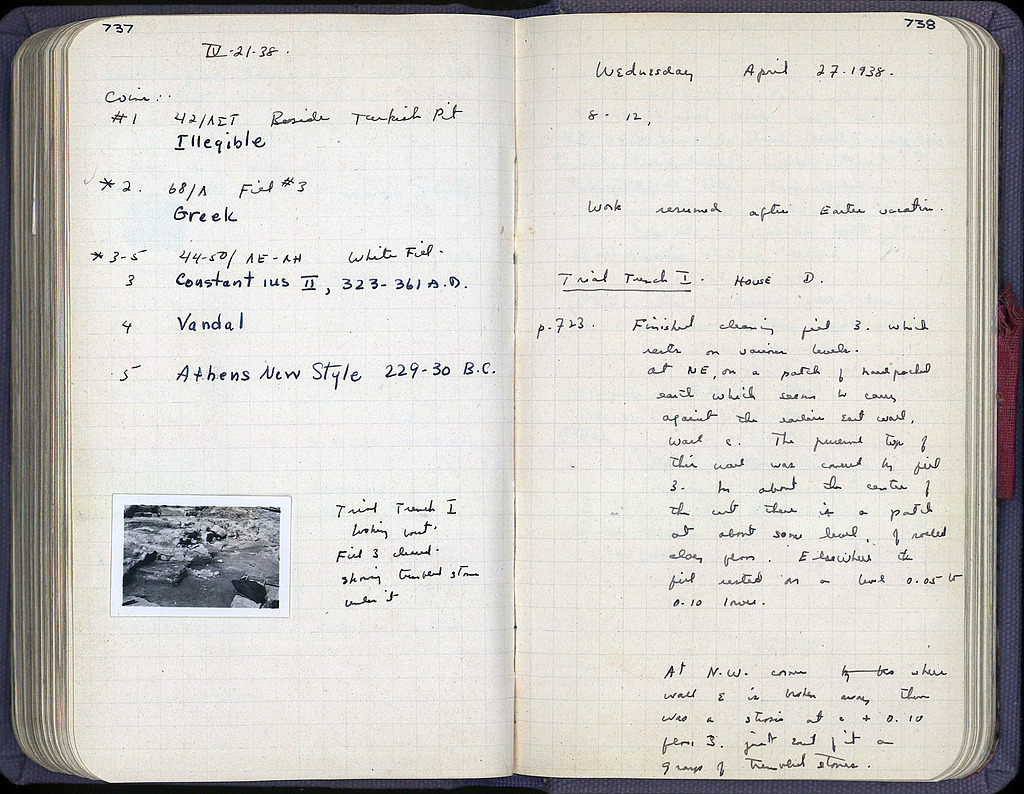 737
IV-21-38.
Coins:
#1 42/ΛΣΤ Beside Turkish Pit
Illegible
*2. 68/Λ Fill #3
Greek
*3-5 44-50/ΛΕ-ΛΗ White Fill.
3 Constantius II, 323-361 A.D.
4 Vandal
5 Athens New Style 229-30 B.C.
Trial Trench I
looking west.
Fill 3 cleared.
showing tumbled stones
under it
738
Wednesday April 27.1938.
8-12,
Work resumed after Easter vacation.
Trial Trench I. HOUSE D.
p.723. Finished cleaning fill 3. which
rests on various levels.
at NE, on a patch of hard packed
earth which seems to carry
against the earlier East wall,
wall c. The present top of
this wall was covered by fill
3. In about the centre of
the cut there is a patch
at about same level, of rolled
clay floor. Elsewhere the
fill rested on a level 0.05 to
0.10 lower.
At N.W. corner where
wall E is broken away there
was a at + 0.10
floor 3. just east of it a
group of tumbled stones.